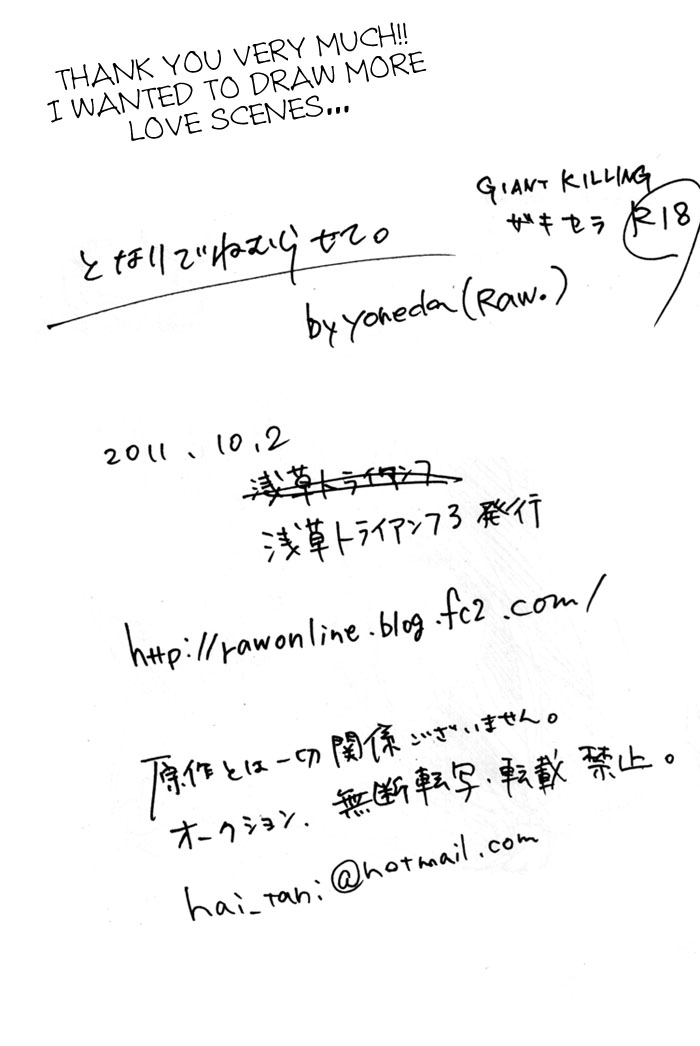 THANK YOU VERY MUCH!!
I WANTED TO DRAW MORE
LOVE SCENES...
GIANT KILLING
ザキセラ R18
となりでねむらせて。
by yoneda (Raw.)
2011、10、2
浅草トライアン7
浅草トライアン73 発行
http://rawonline.blog.fc2.com/
原作とは一切関係ございません。
オークション、無断転写・転載 禁止。
hai_tani@hotmail.com